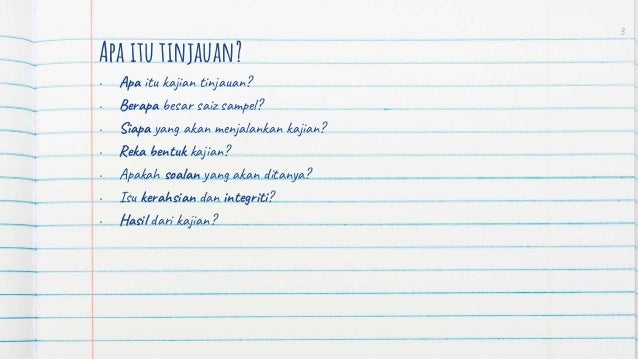 3
Apa itu tinjauan?
• Apa itu kajian tinjauan?
• Berapa besar saiz sampel?
• Siapa yang akan menjalankan kajian?
• Reka bentuk kajian?
• Apakah soalan yang akan ditanya?
• Isu kerahsian dan integriti?
• Hasil dari kajian?